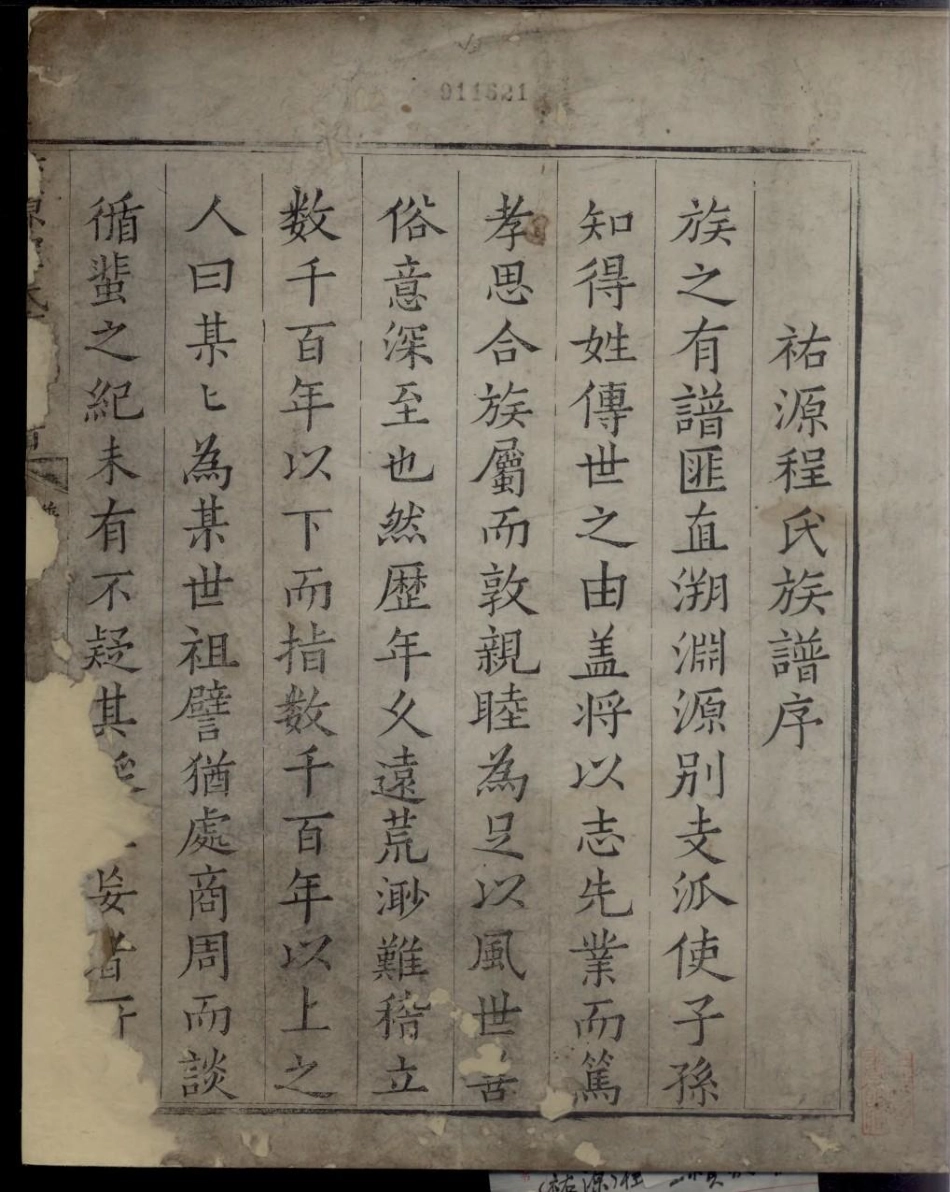 911621
祐源程氏族譜序
族之有譜匪直溯淵源別支派使子孫
知得姓傳世之由盖将以志先業而篤
孝思合族屬而敦親睦為足以風世善
俗意深至也然歴年久遠荒渺難稽立
数千百年以下而指数千百年以上之
人曰某〻為某世祖譬猶處商周而談
循蜚之紀未有不疑其 妄者